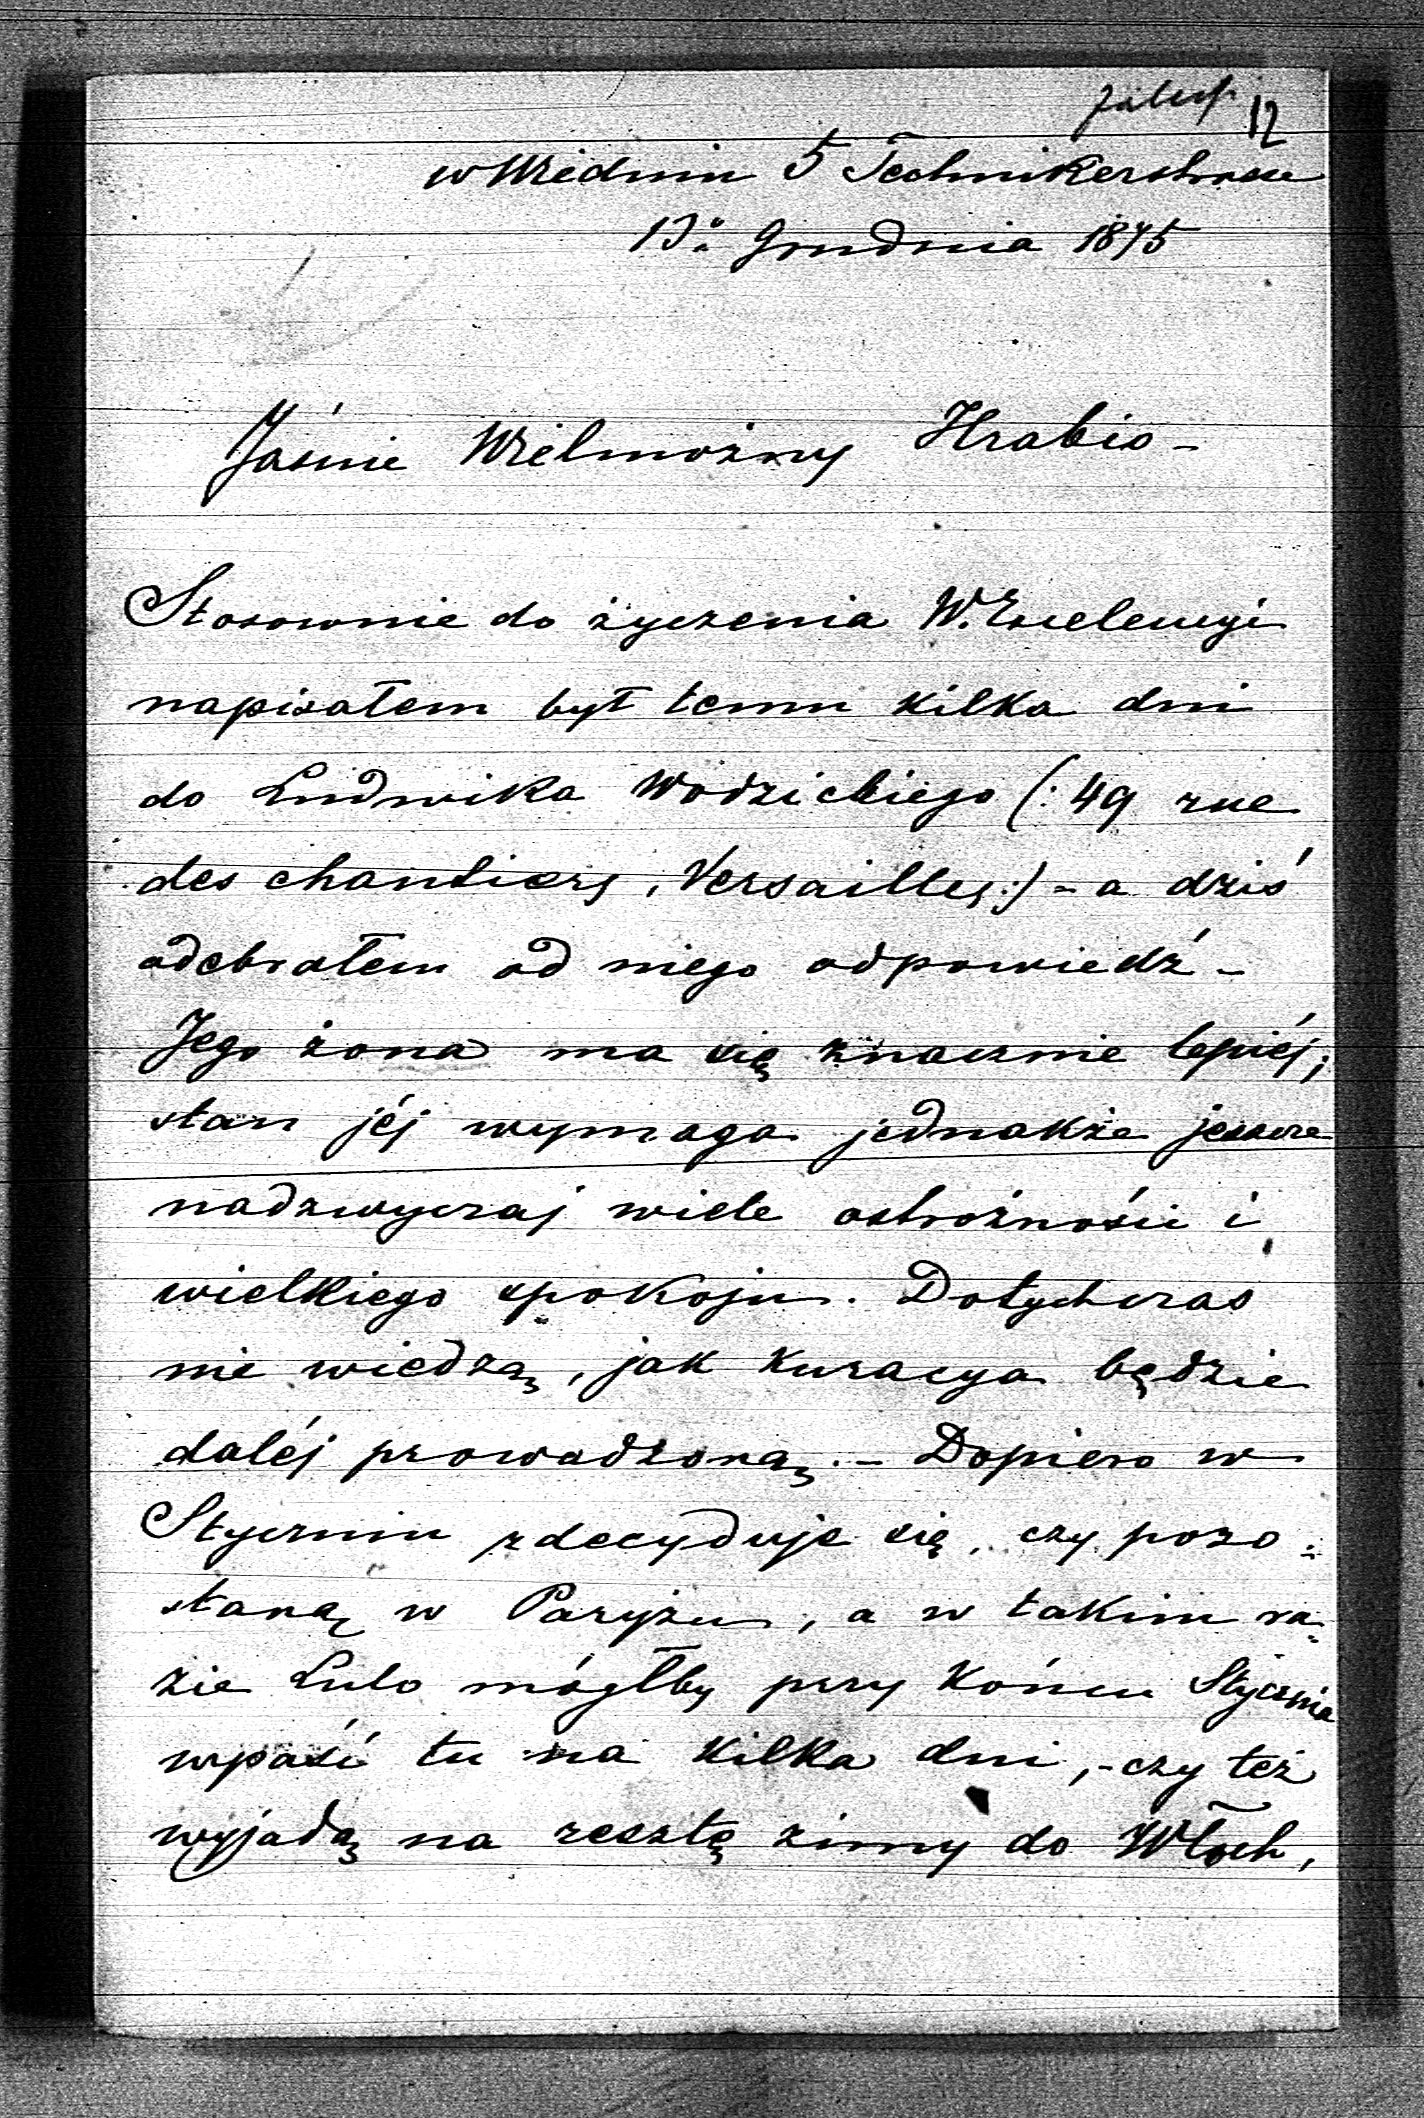 12
w Wiedniu 5 Technikerstrasse
13º Grudnia 1875
Jaśnie Wielmożny Hrabio -
Stosownie do życzenia W. Excelencyi
napisałem był temu kilka dni
do Ludwika Wodzickiego (: 49 rue
des chantiers, Versailles :) - a dziś
odebrałem od niego odpowiedź -
Jego żona ma się znacznie lepiéj;
stan jéj wymaga jednakże jeszcze
nadzwyczaj wiele ostrożności i
wielkiego spokoju. Dotychczas
nie wiedzą, jak kuracya będzie
daléj prowadzoną. - Dopiero w
Styczniu zdecyduje się, czy pozo=
staną w Paryżu, a w takim ra=
zie Lulo mógłby przy końcu Stycznia
wpaść tu na kilka dni, - czy też
wyjadą na resztę zimy do Włoch,